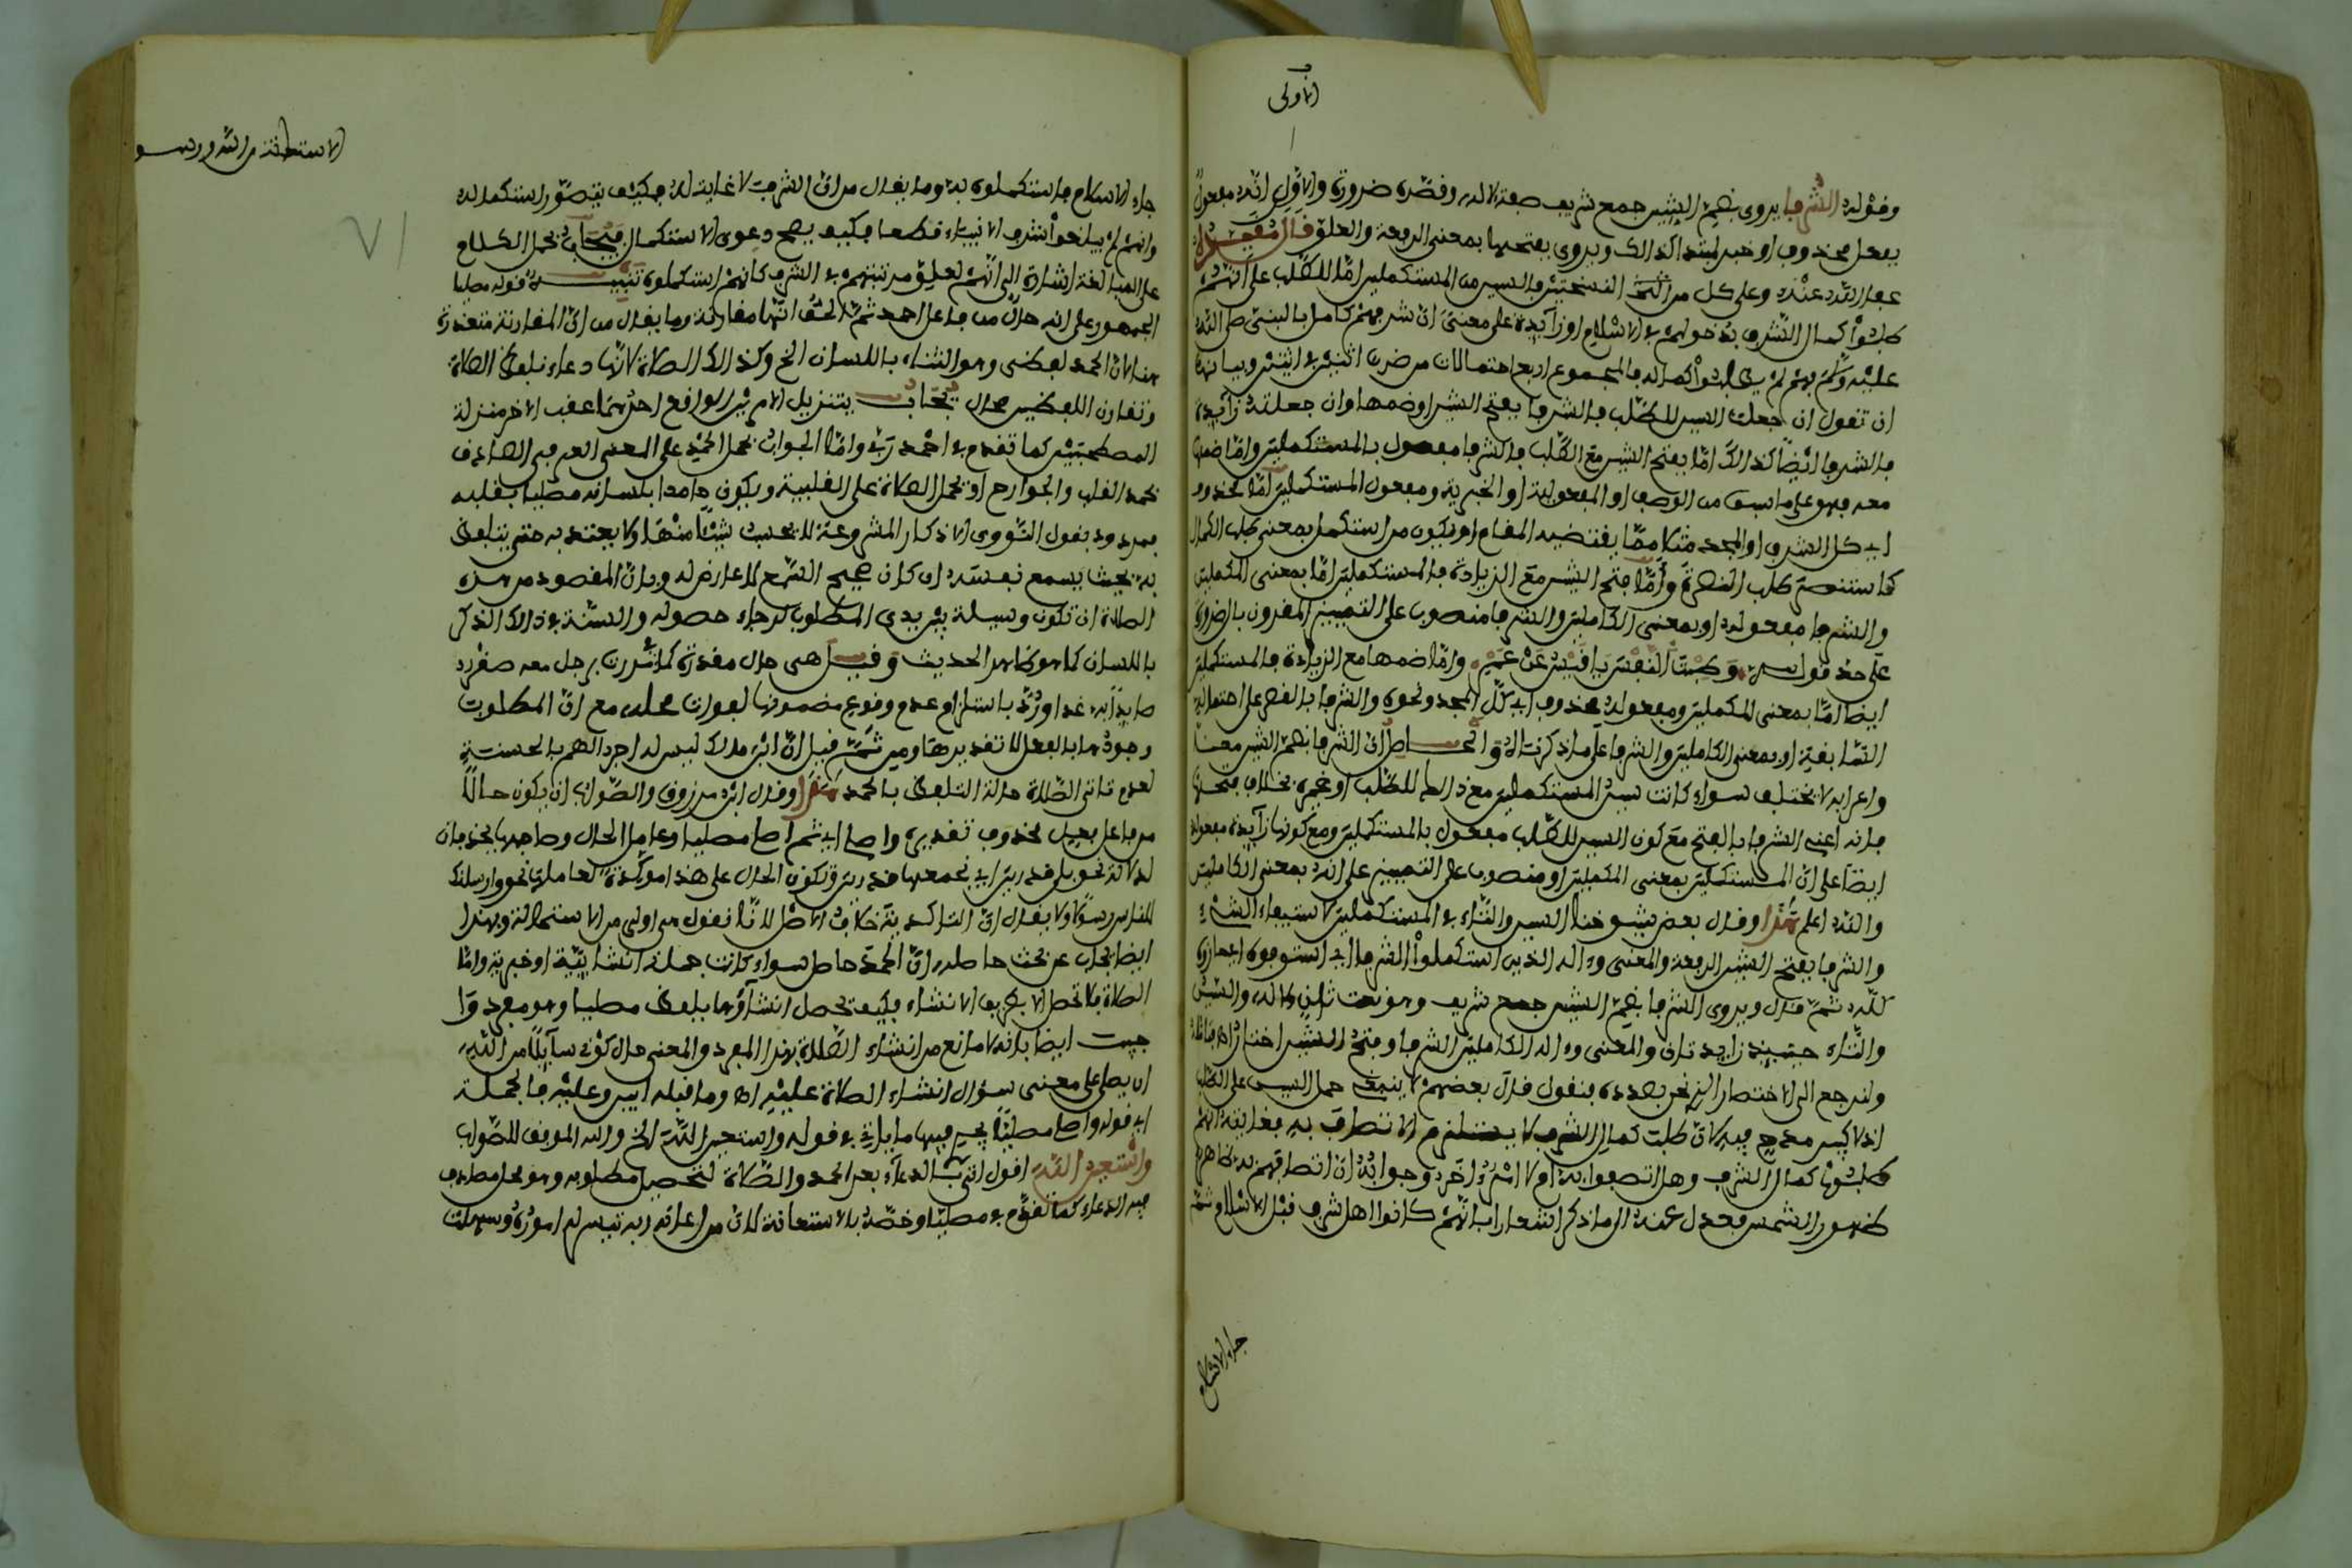 الأولى
وقوله الشرفا يروى بضم الشين جمع شريف صفة لاله وقصره ضرورة والأولى انه مفعول
بفعل محذوف او خبر لمبتدا كذالك ويروى بفتحها بمعنى الرفعة والعلو قال
عفا الله عنه وعلى كل من النسختين فالسين من المستكملين اما للطلب على انهم
طلبوا كمال الشرف بدخولهم في الاسلام او زايدة على معنى ان شرفهم كامل بالنبي صلى الله
عليه وسلم فهم لم يطلبوا كماله فالمجموع اربع احتمالات من ضرب اثنين في اثنين وبيانها
ان تقول ان جعلت السين للطلب فالشرفا بفتح الشين او ضمها وان جعلته زايدة
فالشرفا ايضا كذالك اما بفتح الشين مع الطلب فالشرفا مفعول بالمستكملين واما ضمها
معه فهو على ما سبق من الوصف او المفعولية او الخبرية ومفعول المستكملين اما محذوف
اي كل الشرف او المجد مثلا مما يقتضيه المقام او يكون من استكمل بمعنى طلب الكمال
كاستنصر طلب النصرة واما فتح الشين مع الزيادة فالمستكملين اما بمعنى المكملين
والشرفا مفعوله او بمعنى الكاملين والشرفا منصوب على التمييز المقرون بال ضرورة
على حد قوله وطبت النفس يا قيس عن عمرو واما ضمها مع الزيادة فالمستكملين
ايضا اما بمعنى المكملين ومفعوله محذوف اي كل المجد ونحوه والشرفا بالقصر على احتمالاته
السابقة او بمعنى الكاملين والشرفا على ما ذكرناه والحاصل ان الشرفا بضم الشين معناه
واعرابه لا يختلف سواء كانت سين المستكملين مع ذالك للطلب او غيره بخلاف فتحها
فانه اعني الشرفا بالفتح مع كون السين للطلب مفعول بالمستكملين ومع كونها زايدة مفعوله
ايضا على ان المستكملين بمعنى المكملين او منصوب على التمييز على انه بمعنى الكاملين
والله اعلم هذا وقال بعض شيوخنا السين والتاء في المستكملين لاستيفاء الشيء
والشرفا بفتح الشين الرفعة والمعنى واله الذين استكملوا الشرفا اي استوفوه احرازه
كله ثم قال ويروى الشرفا بضم الشين جمع شريف وهو نعت ثان لاله والسين
والتاء حينيذ زايدتان والمعنى واله الكاملين الشرفا وفتح الشين اختاره
ولنرجع الى الاختصار الذي نحن بصدده فنقول قال بعضهم لا ينبغي حمل السين على الطلب
اذ لا كبير مدح فيه لان طلب كمال الشرف لا يستلزم الاتصاف به فغايته انهم
طلبوا كمال الشرف وهل اتصفوا به ام لا امر اخر وجوابه ان اتصافهم به ظاهر
ظهور الشمس فعدل عنه الى ما ذكر اشعارا بانهم كانوا اهل شرف قبل الاسلام ثم
جاء الاسلام
جاء الاسلام فاستكملوه به وما يقال من ان الشرف لا غاية له فكيف يتصور استكماله
وانهم لم يبلغوا شرف الانبياء قطعا فكيف يصح دعوى الاستكمال فيجاب بحمل الكلام
على المبالغة اشارة الى انهم لعلو مرتبتهم في الشرف كانهم استكملوه تنبيه قوله مصليا
الجمهور على انه حال من فاعل احمد ثم الحق انها مقارنة وما يقال من ان المقارنة متعذرة
هنا لان الحمد لفظي وهو الثناء باللسان الخ وكذالك الصلاة لانها دعاء بلفظ الصلاة
وتقارن اللفظين محال يجاب بتنزيل الامرين الواقع احدهما عقب الاخر منزلة
المصطحبين كما تقدم في احمد ربي واما الجواب بحمل الحمد على المعنى العرفي الصادق
بحمد القلب والجوارح او بحمل الصلاة على القلبية ويكون حامدا بلسانه مصليا بقلبه
فمردود بقول النووي الاذكار المشروعة لا يحسب شيئا منها ولا يعتد به حتى يتلفظ
به بحيث يسمع نفسه ان كان صحيح السمع لا عارض له وبان المقصود من هذه
الصلاة ان تكون وسيلة بين يدي المطلوب لرجاء حصوله والسنة في ذالك الذكر
باللسان كما هو ظاهر الحديث وقيل هي حال مقدرة كمررت برجل معه صقر
صايدا به غدا ورد باستلزام عدم وقوع مضمونها لفوات محله مع ان المطلوب
وجودها بالفعل لا تقديرها ومن ثم قيل ان ابن مالك ليس له اجر الهم بالحسنة
لعدم تاتي الصلاة حالة التلفظ بالحمد هذا وقال ابن مرزوق والصواب ان يكون حالا
من فاعل فعل محذوف تقديره واصلي اي ثم اصلي مصليا وعامل الحال وصاحبها يحذفان
لدلالة نحو بلى قادرين اي نجمعها قادرين وتكون الحال على هذا مؤكدة لعاملها نحو وارسلناك
للناس رسولا ولا يقال ان التاكيد خلاف الاصل لانا نقول هو اولى من الاستحالة وبهذا
ايضا يجاب عن بحث حاصله ان الحمد حاصل سواء كانت جملته انشائية او خبرية واما
الصلاة فلا تحصل الا بطريق الانشاء فكيف تحصل انشاؤها بلفظ مصليا وهو مفرد وا
جيب ايضا بانه لا مانع من انشاء الصلاة بهذا المفرد والمعنى حال كوني سايلا من الله
ان يصلي على معنى سؤال انشاء الصلاة عليه اه وما قبله ابين وعليه فالجملة
اي قوله واصلي مصليا يجري فيها ما ياتي في قوله واستعين الله الخ والله الموفق للصواب
واستعين الله اقول اتى بالدعاء بعد الحمد والصلاة لتحصيل مطلوبه وهو محل مظنة
فيه الدعاء كما تقدم في مصليا وخصه بالاستعانة لان من اعانه ربه تيسرت له اموره وسهلت